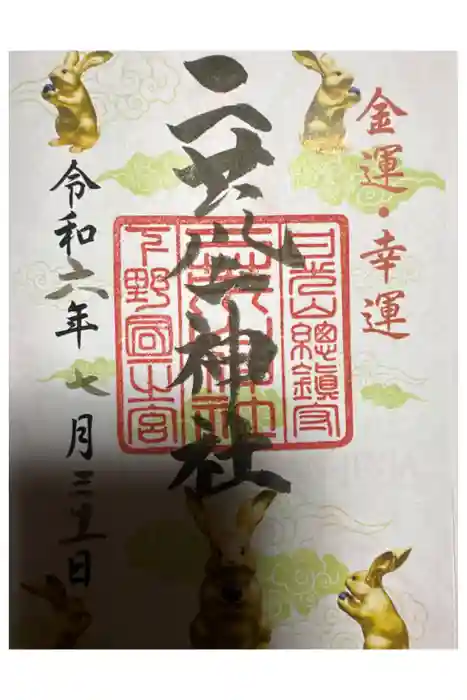 金運・幸運
二荒山神社
日光山總鎮守
二荒山神社
下野國一之宮
令和六年七月日